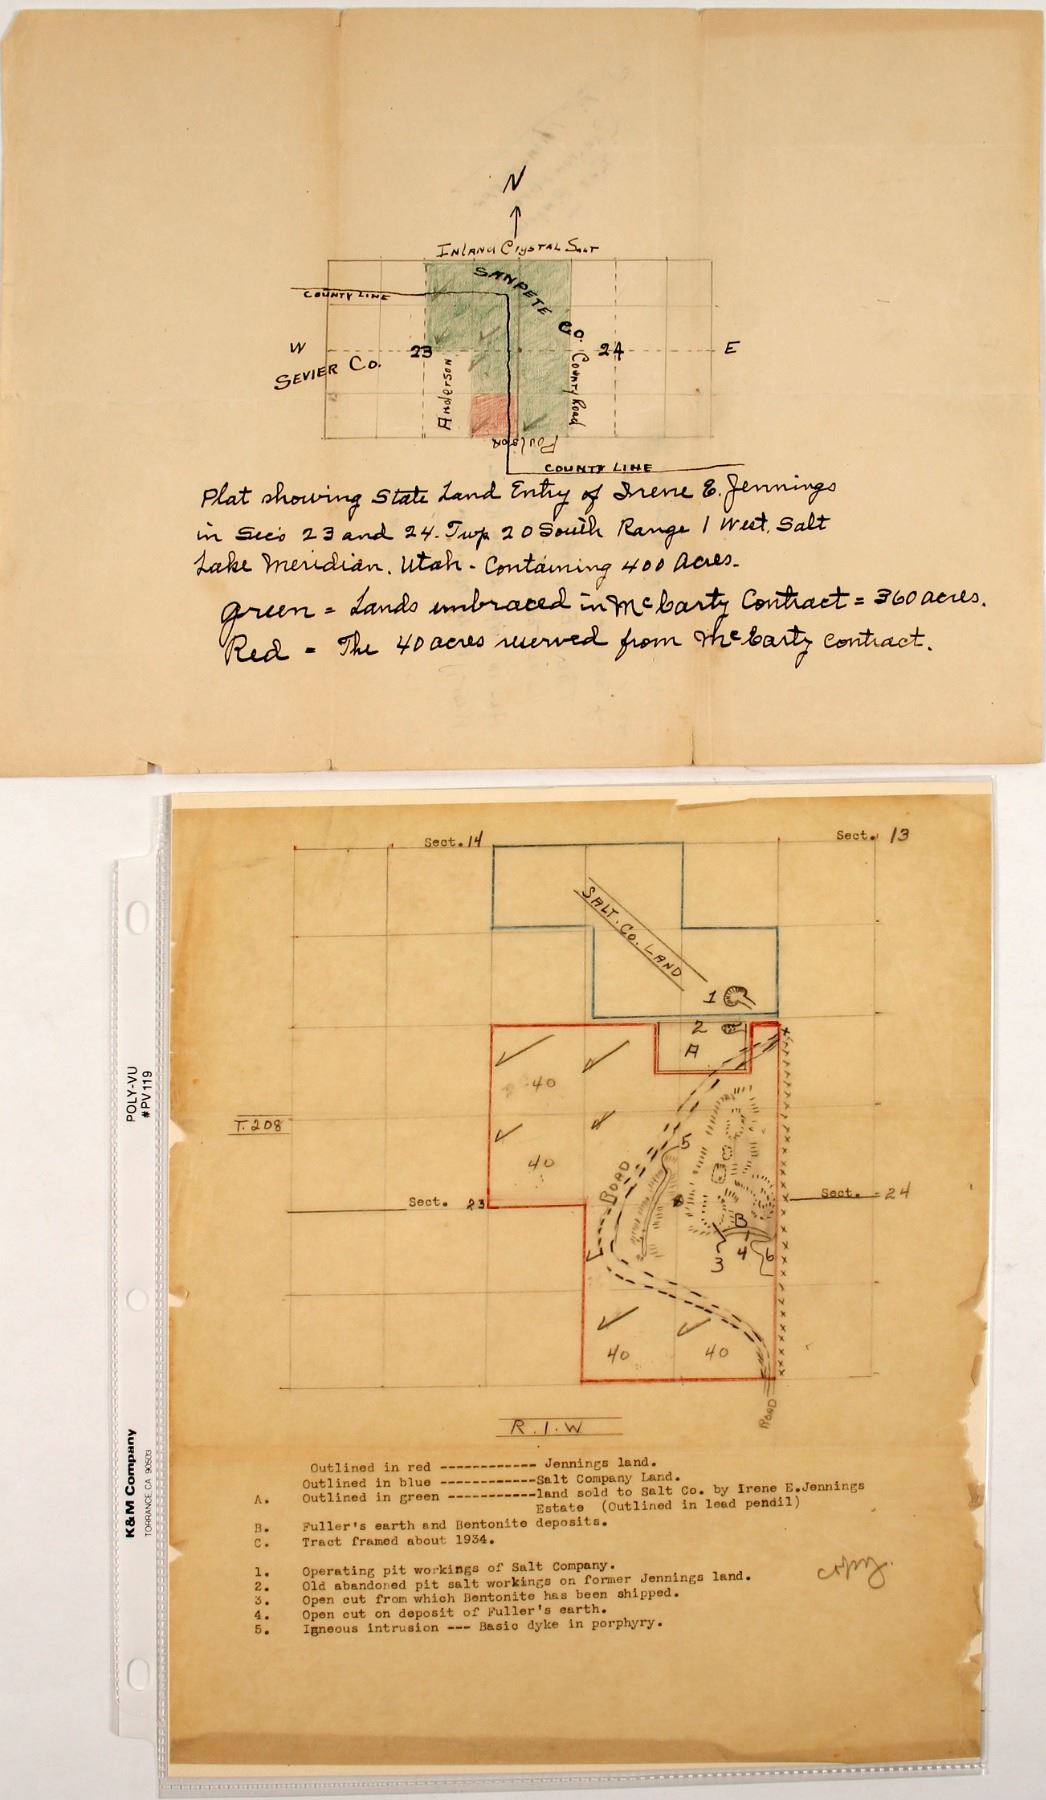 N
INLAND CRYSTAL SALT
SANPETE CO.
COUNTY LINE
W
23
24
E
SEVIER CO.
Anderson
County Road
Poulson
COUNTY LINE
Plat showing State Land Entry of Irene E. Jennings
in Sec's 23 and 24. Twp. 20 South Range 1 West, Salt
Lake Meridian, Utah - Containing 400 Acres.
Green = Lands embraced in McCarty Contract = 360 acres.
Red = The 40 acres reserved from McCarty contract.
Sect. 14
Sect. 13
SALT. CO. LAND
1
2
A
40
40
5
T. 20S
ROAD
Sect. 23
Sect. 24
B
3
4
6
40
40
ROAD
R. 1. W
Outlined in red ------------ Jennings land.
Outlined in blue ------------Salt Company Land.
A. Outlined in green -----------land sold to Salt Co. by Irene E.Jennings
Estate (Outlined in lead pendil)
B. Fuller's earth and Bentonite deposits.
C. Tract framed about 1934.
1. Operating pit workings of Salt Company.
2. Old abandoned pit salt workings on former Jennings land.
3. Open cut from which Bentonite has been shipped.
4. Open cut on deposit of Fuller's earth.
5. Igneous intrusion --- Basic dyke in porphyry.
copy.
POLY-VU
#PV119
K&M Company
TORRANCE, CA 90503